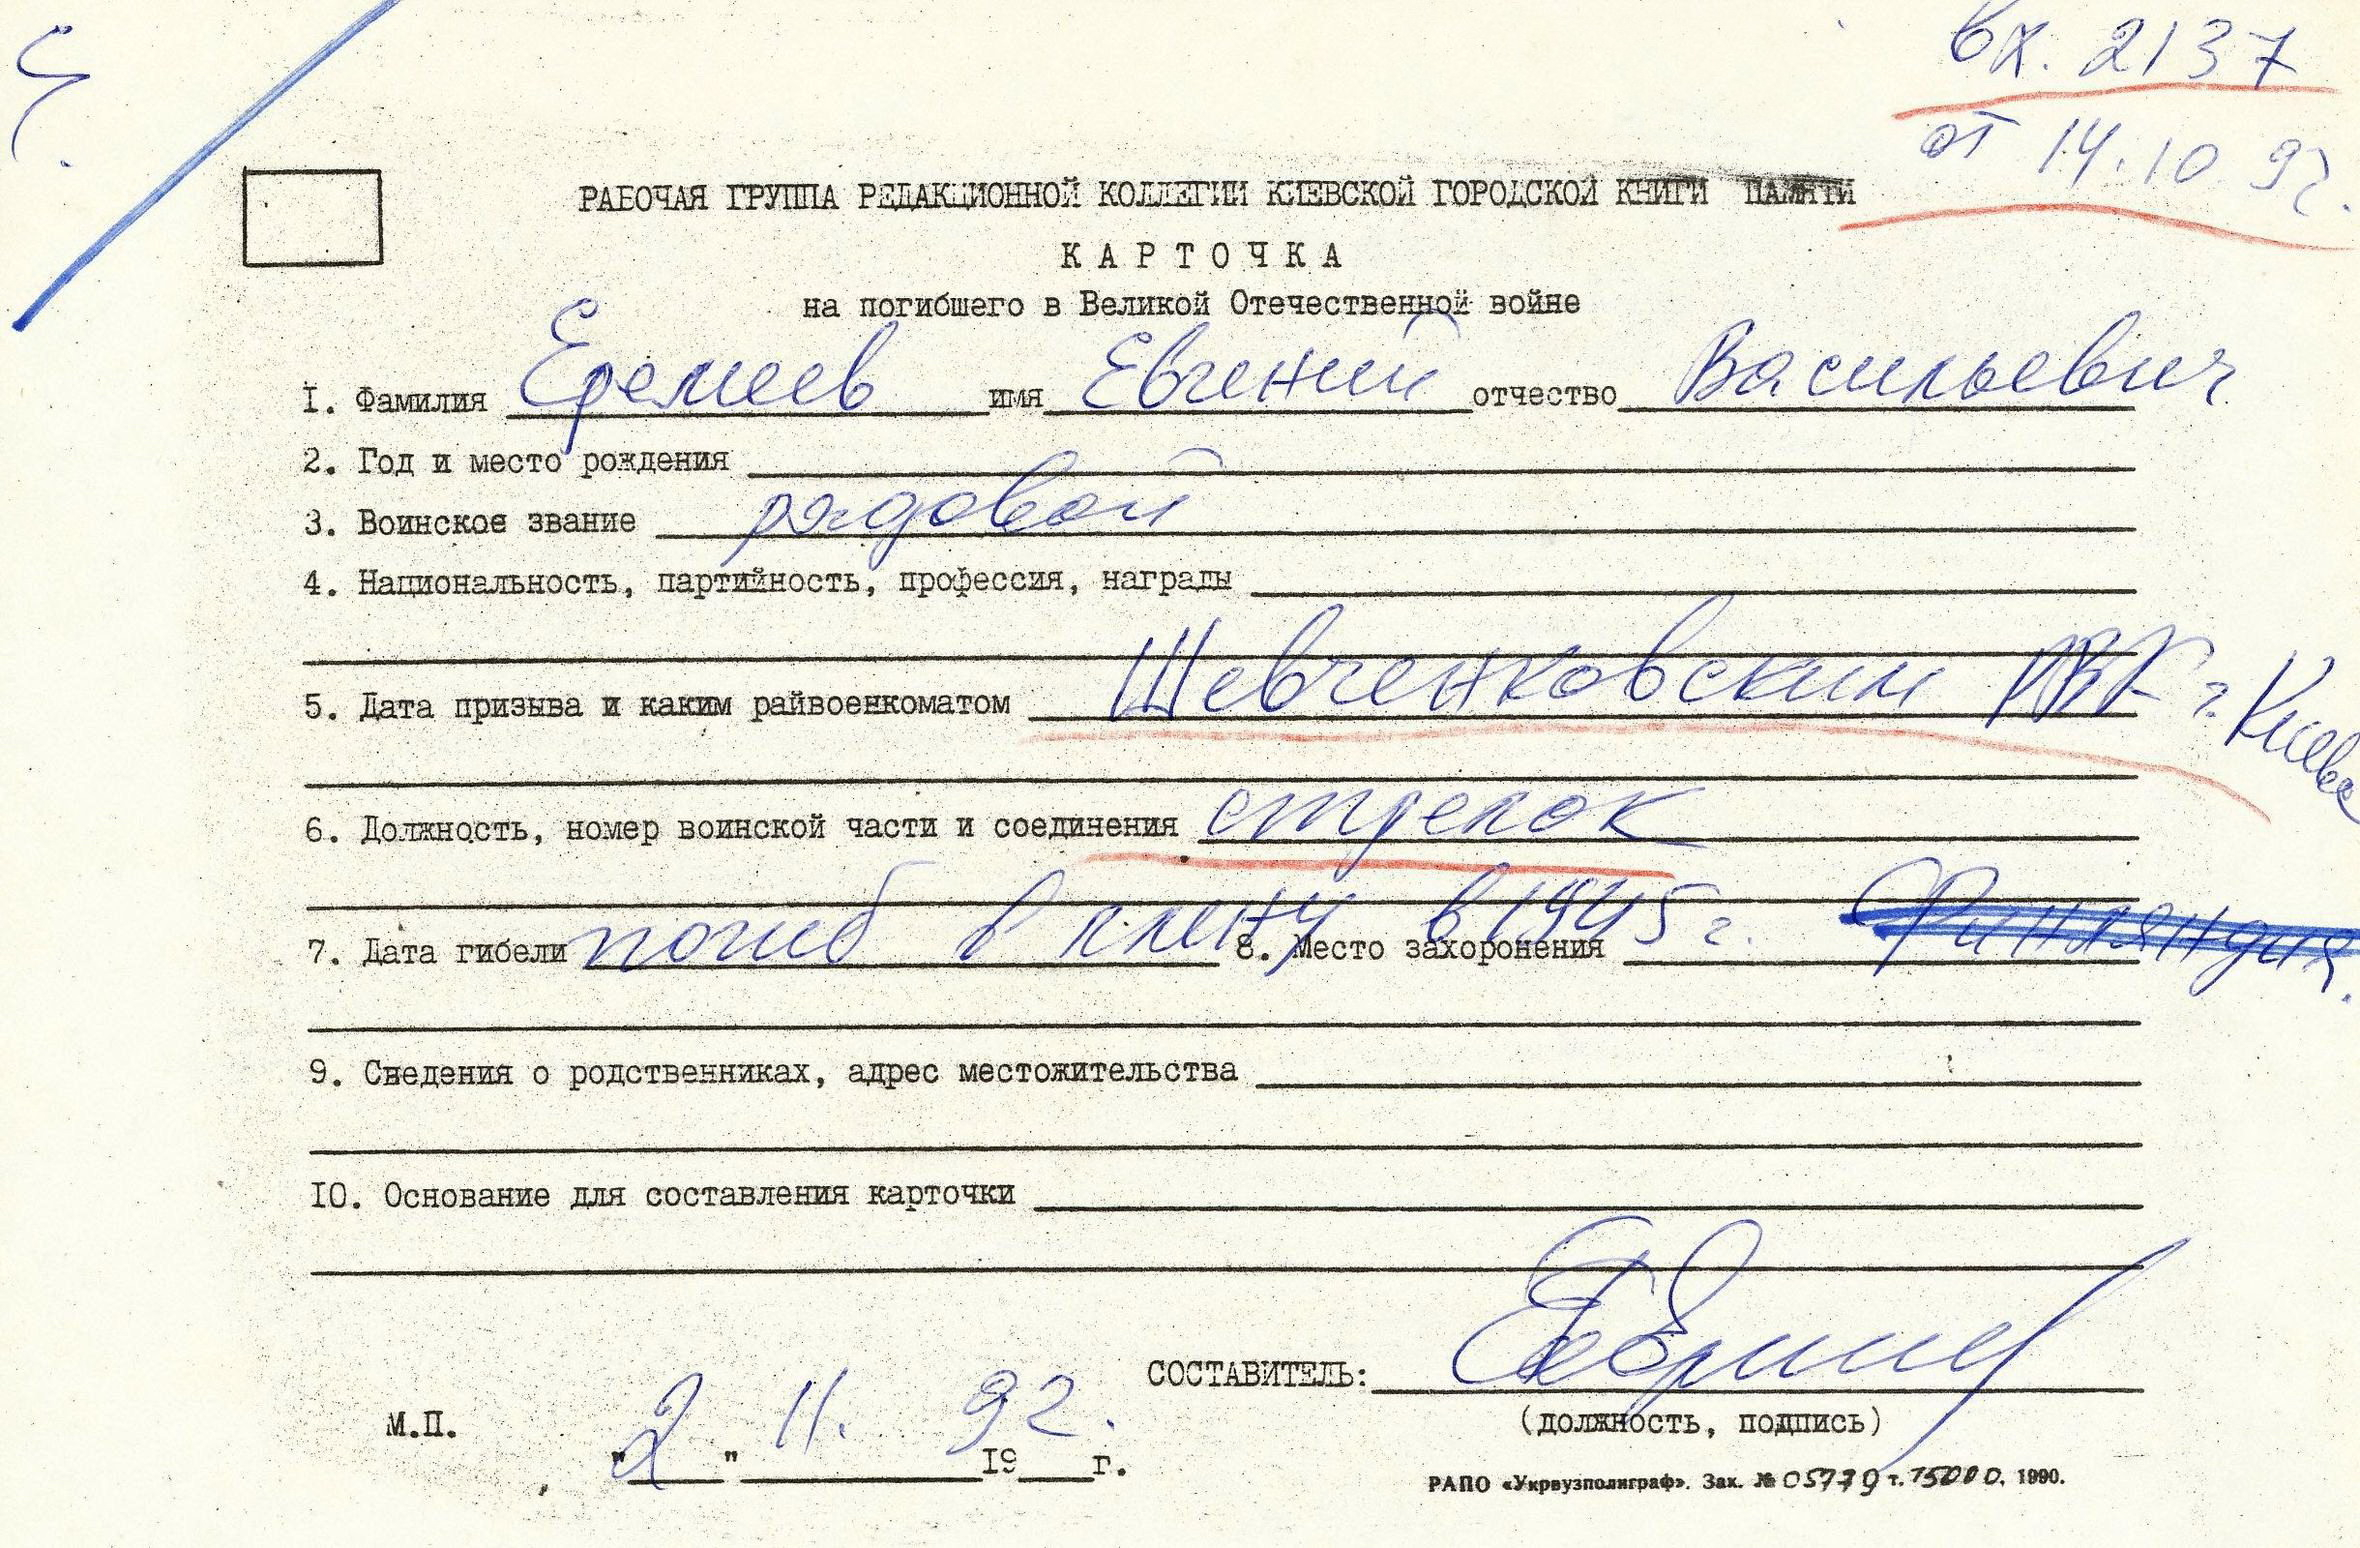 вх. 2137
от 14.10 92.
РАБОЧАЯ ГРУППА РЕДАКЦИОННОЙ КОЛЛЕГИИ КИЕВСКОЙ ГОРОДСКОЙ КНИГИ ПАМЯТИ
КАРТОЧКА
на погибшего в Великой Отечественной войне
1. Фамилия Еремеев имя Евгений отчество Васильевич
2. Год и место рождения
3. Воинское звание рядовой
4. Национальность, партийность, профессия, награды
5. Дата призыва и каким райвоенкоматом Шевченковским РВК г. Киева
6. Должность, номер воинской части и соединения стрелок
7. Дата гибели погиб в плену в 1945 г. 8. Место захоронения Финляндия.
9. Сведения о родственниках, адрес местожительства
10. Основание для составления карточки
СОСТАВИТЕЛЬ:
(должность, подпись)
М.П.
"2" 11. 1992. г.
РАПО «Укрвузполиграф». Зак. № 05779 т. 15000. 1990.